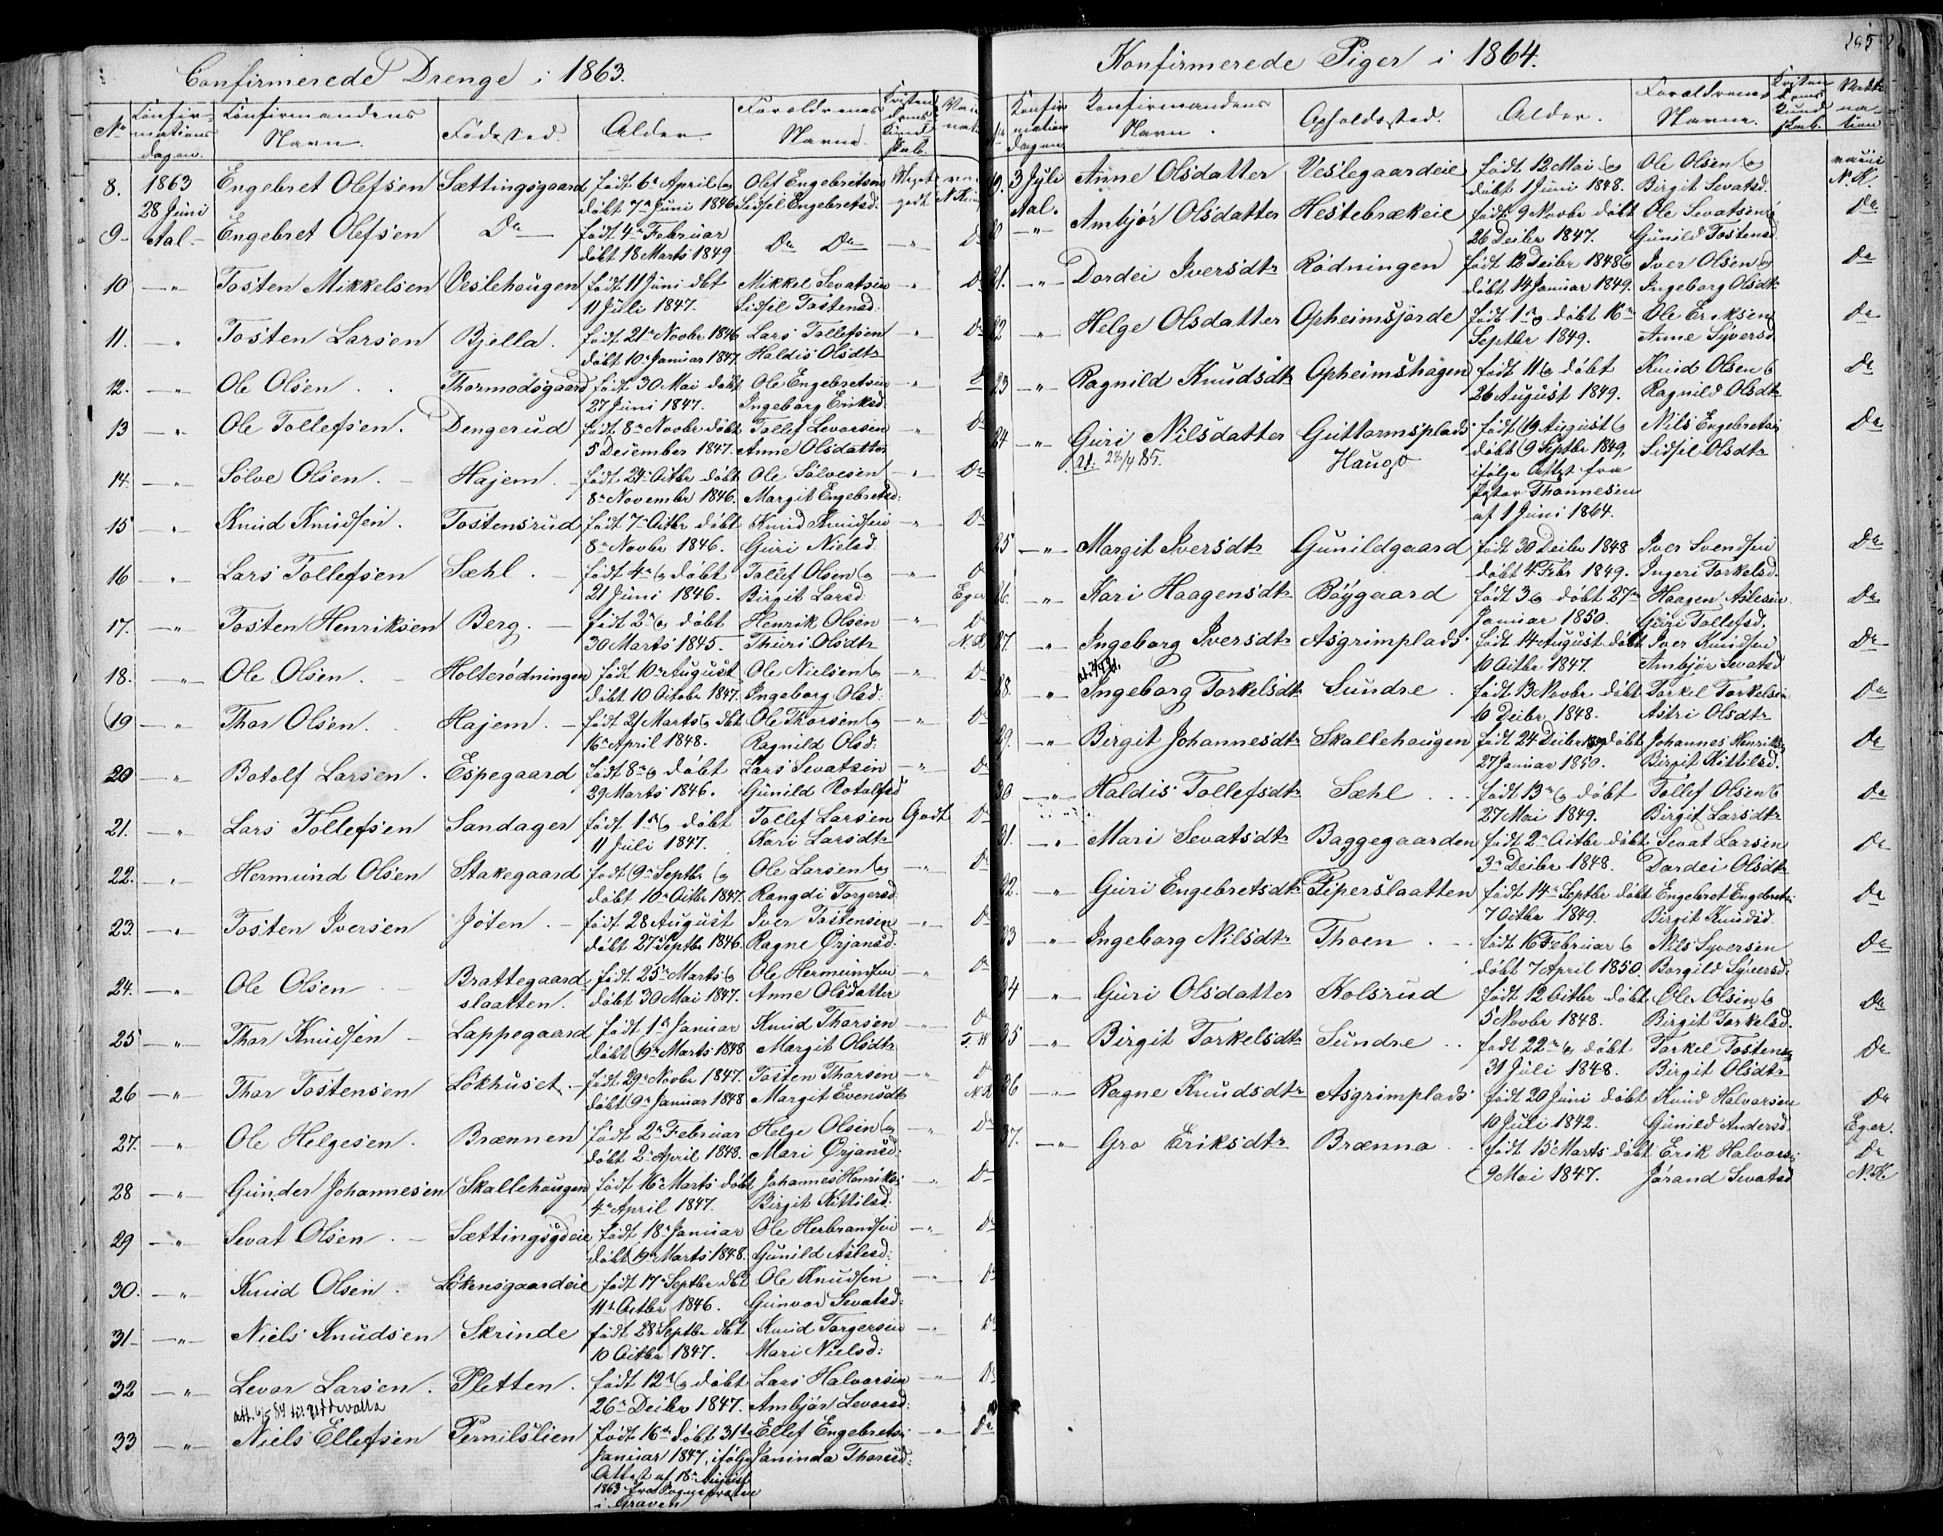 Confirmerede Drenge i 1863.
No Confirmations dagen. Confirmandens Navn. Fødested. Alder. Forældrenes Navne.
8. 1863 Engebret Olefsen Sættingsgaard født 6te April og Olef Engebretsen Meget
28 Juni døbt 7de Juni 1846 Sidsel Engebretsd: godt
9 Aal Engebret Olefsen Do født 4de Februar Do Do - " -
døbt 18 Marts 1849
10 - " - Tosten Mikkelsen Veslehougen født 11 Juni dbt Mikkel Sevatsen - " -
11 Juli 1847. Sidsel Tostensd:
11. - " - Tosten Larsen Bjella. født 21de Novbr 1846 Lars Tollefsen " Do
døbt 10de Januar 1847. Haldis Olsdtr
12. - " - Ole Olsen. Thormodsgaard født 30 Mai døbt Ole Engebretsen - " -
27 Juni 1847. Ingeborg Eriksd:
13 - " - Ole Tollefsen. Dengerud født 8de Novbr døbt Tollef Levorsen " Do
5 December 1847. Anne Olsdatter
14. " Sølve Olsen. Hajem. født 24de Octbr døbt Ole Sølvesen - " - Do
8de November 1846. Margit Engebretsd:
15 - " Knud Knudsen. Tostensrud født 7de Octbr døbt Knud Knudsen - " - Do
8de Novbr 1846. Guri Nielsd:
16 " Lars Tollefsen Sæhl. født 4de og døbt Tollef Olsen og - " -
21 Juni 1846. Birgit Larsd: Eger
17. - " - Tosten Henriksen Berg. født 2de og døbt Henrik Olsen - " - Do
30 Marts 1845. Thuri Olsdtr N.K
18. - " - Ole Olsen. Holterødningen født 10de August Ole Nielsen og - " - Do
døbt 10 October 1847. Ingeborg Olsd:
19 - " - Thor Olsen. Hajem. født 21 Marts og dbt Ole Thorsen og - " - Do
16de April 1848. Ragnild Olsd:
20 - " - Botolf Larsen. Espegaard født 8de og døbt Lars Sevatsen - " - Do
29 Marts 1846. Gunild Botolfsd
21. - " - Lars Tollefsen Sandager født 1ste og døbt Tollef Larsen Godt Do
11 Juli 1847. Kari Larsdtr
22. - " - Hermund Olsen Stakegaard født 9de Septbr og Ole Larsen og - " - Do
døbt 10de Octbr 1847. Rangdi Torgersd:
23. - " - Tosten Iversen Jøten. født 28 August Iver Tostensen - " - Do
døbt 27 Septbr 1846. Ragne Ørjansd:
24. - " - Ole Olsen Brattegaard født 25de Marts og Ole Hermundsen - " Do
slaatten. døbt 30 Mai 1847. Anne Olsdatter
25 - " - Thor Knudsen Lappegaard født 1ste Januar Knud Thorsen - " -
døbt 19de Marts 1848 Margit Olsdtr
26 - " - Thor Tostensen Løkhuset. født 29de Novbr 1847. Tosten Thorsen - " -
døbt 9de Januar 1848 Margit Evensdtr N.K
27. - " Ole Helgesen. Brænnen født 2de Februar Helge Olsen og - " Do
døbt 2de April 1848. Mari Ørjansd:
28 - " - Gunder Johannesen Skallehougen født 16de Marts døbt Johannes Henriks: - " - Do
4de April 1847. Birgit Kittilsd:
29 - " - Sevat Olsen. Sættingsgdeie født 18de Januar Ole Herbrandsen - " - Do
døbt 19de Marts 1848. Gunild Aslesd:
30. - " - Knud Olsen. Løkensgaardeie født 17de Septbr dbt Ole Knudsen - " - Do
11te Octbr 1846. Gunvor Sevatsd:
31 - " - Niels Knudsen Skrinde født 28 Septbr dbt Knud Torgersen - " - Do
10 Octbr 1847. Mari Nielsd:
32 - " - Levor Larsen. Pletten. født 12te og døbt Lars Halvorsen - " - Do
att. til Uddevalla 26de Decbr 1847. Ambjør Levorsd:
33 - " - Niels Ellefsen Pernilslien født 16de døbt 31te Ellef Engebrets: - " - Do
Januar 1847, ifølge Janinda Thorsd:
Attest af 18de August
1863 fra Sognepræsten
i Graven
Konfirmerede Piger i 1864.
Konfirmations dagen Konfirmandens Navn. Opholdssted. Alder. Forældrenes Navne. Kristendoms Kundskab. Vaktination
19. 3 Juli Anne Olsdatter Veslegaardeie født 12 Mai og Ole Olsen og
Aal. døbt 1 Juni 1848. Birgit Sevatsd. N.K.
20 - " - Ambjør Olsdatter Hestebrækeie født 9 Novbr døbt Ole Sevatsen Do
26 Decbr 1847. Gunild Tostensd
21. - " - Dordei Iversdtr Rødningen født 12 Decbr 1848 og Iver Olsen og Do
døbt 14 Januar 1849. Ingeborg Olsdtr
22 " Helge Olsdatter Opheimsjorde født 1ste og døbt 16de Ole Eriksen Do
Septbr 1849. Anne Syversd
23 - " - Ragnild Knudsdtr Opheimshagen født 11 og døbt Knud Olsen og Do
26 August 1849. Ragnild Olsdtr
24 - " - Guri Nilsdatter Guttormsplads født 19 August og Nils Engebretsen Do
24/4 85. Haugo døbt 9 Septbr 1849, Sidsel Olsdtr
ifølge Attest fra
Pastor Thonnesen
af 1 Juni 1864.
25 - " - Margit Iversdtr Gunildgaard født 30 Decbr 1848 Iver Svendsen Do
døbt 4 Febr 1849. Ingeri Torkelsd.
26. - " - Kari Haagensdtr Bøygaard født 3 og døbt 27de Haagen Aslesen Do
Januar 1850. Guri Tollefsd.
27 " Ingeborg Iversdtr Asgrimplads født 14 August døbt Iver Knudsen Do
10 Octbr 1847. Ambjør Sevatsd
28. " Ingeborg Torkelsdtr Sundre. født 13 Novbr døbt Torkel Torkelsen Do
10 Decbr 1848. Astri Olsdtr
29. - " - Birgit Johannesdtr Skallehougen født 24 Decbr døbt Johannes Henriks Do
27 Januar 1850. Birgit Kittilsd.
30 - " - Haldis Tollefsdtr Sæhl født 13de og døbt Tollef Olsen og Do
27 Mai 1849. Birgit Larsdtr
31. - " - Mari Sevatsdtr Baggegaarden født 2de Octbr døbt Sevat Larsen Do
3de Decbr 1848. Dordei Olsdtr
32. - " - Guri Engebretsdtr Piperslaatten født 14de Septbr døbt Engebret Engebrets: Do
7 Octbr 1849. Birgit Knudsd.
33 " Ingeborg Nilsdtr Thoen født 16 Februar og Nils Syversen Do
døbt 7 April 1850. Borgild Syversd.
34 - " - Guri Olsdatter Kolsrud født 12 Octbr døbt Ole Olsen og Do
5 Novbr 1848. Birgit Torkelsd.
35 - " - Birgit Torkelsdtr Sundre født 22de og døbt Torkel Tostens Do
31 Juli 1848. Birgit Olsdtr
36 " Ragne Knudsdtr Asgrimplads født 20 Juni døbt Knud Halvorsen Do
10 Juli 1842. Gunild Andersd. Eger.
37. - " - Gro Eriksdtr Brænna født 15 Marts døbt Erik Halvors: Do
9 Mai 1847. Jørand Sevatsd N.K.